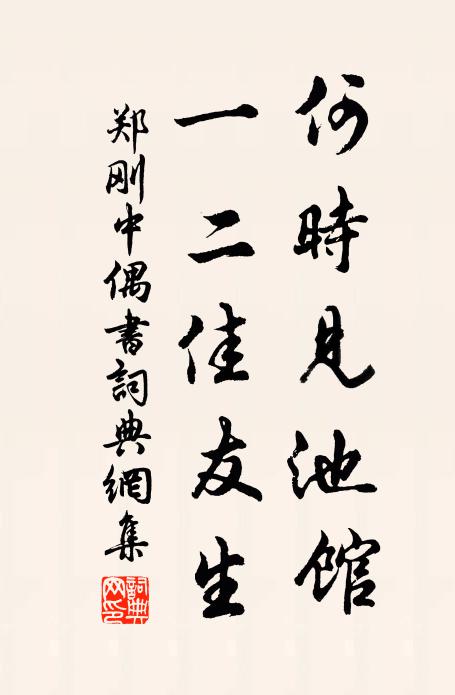 何時見池館
一二佳友生
郑刚中偶書詞典網集
詞典网印